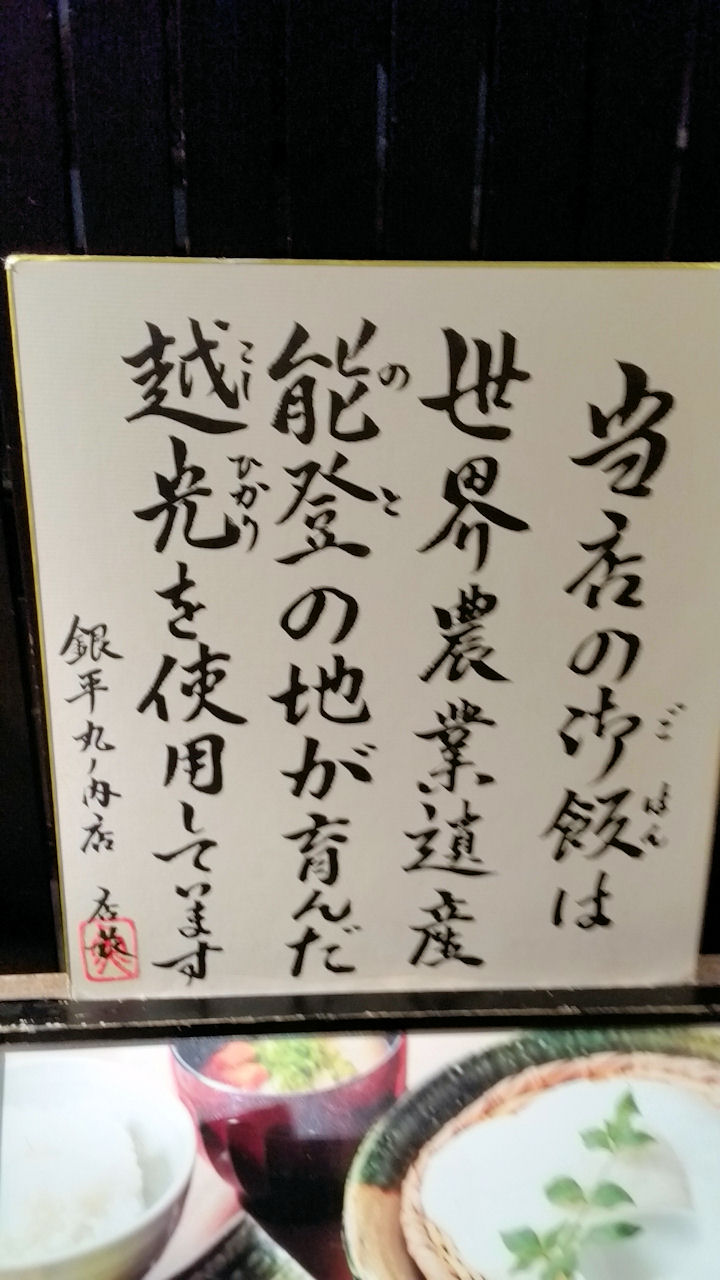 当店の御飯は
ごはん
世界農業遺産
能登の地が育んだ
のと
越光を使用しています
こしひかり
銀平丸ノ内店 店主